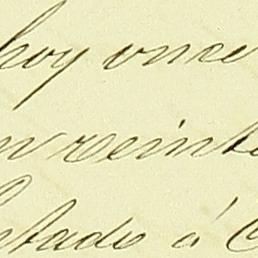 hoy once
n veinte
ntado á